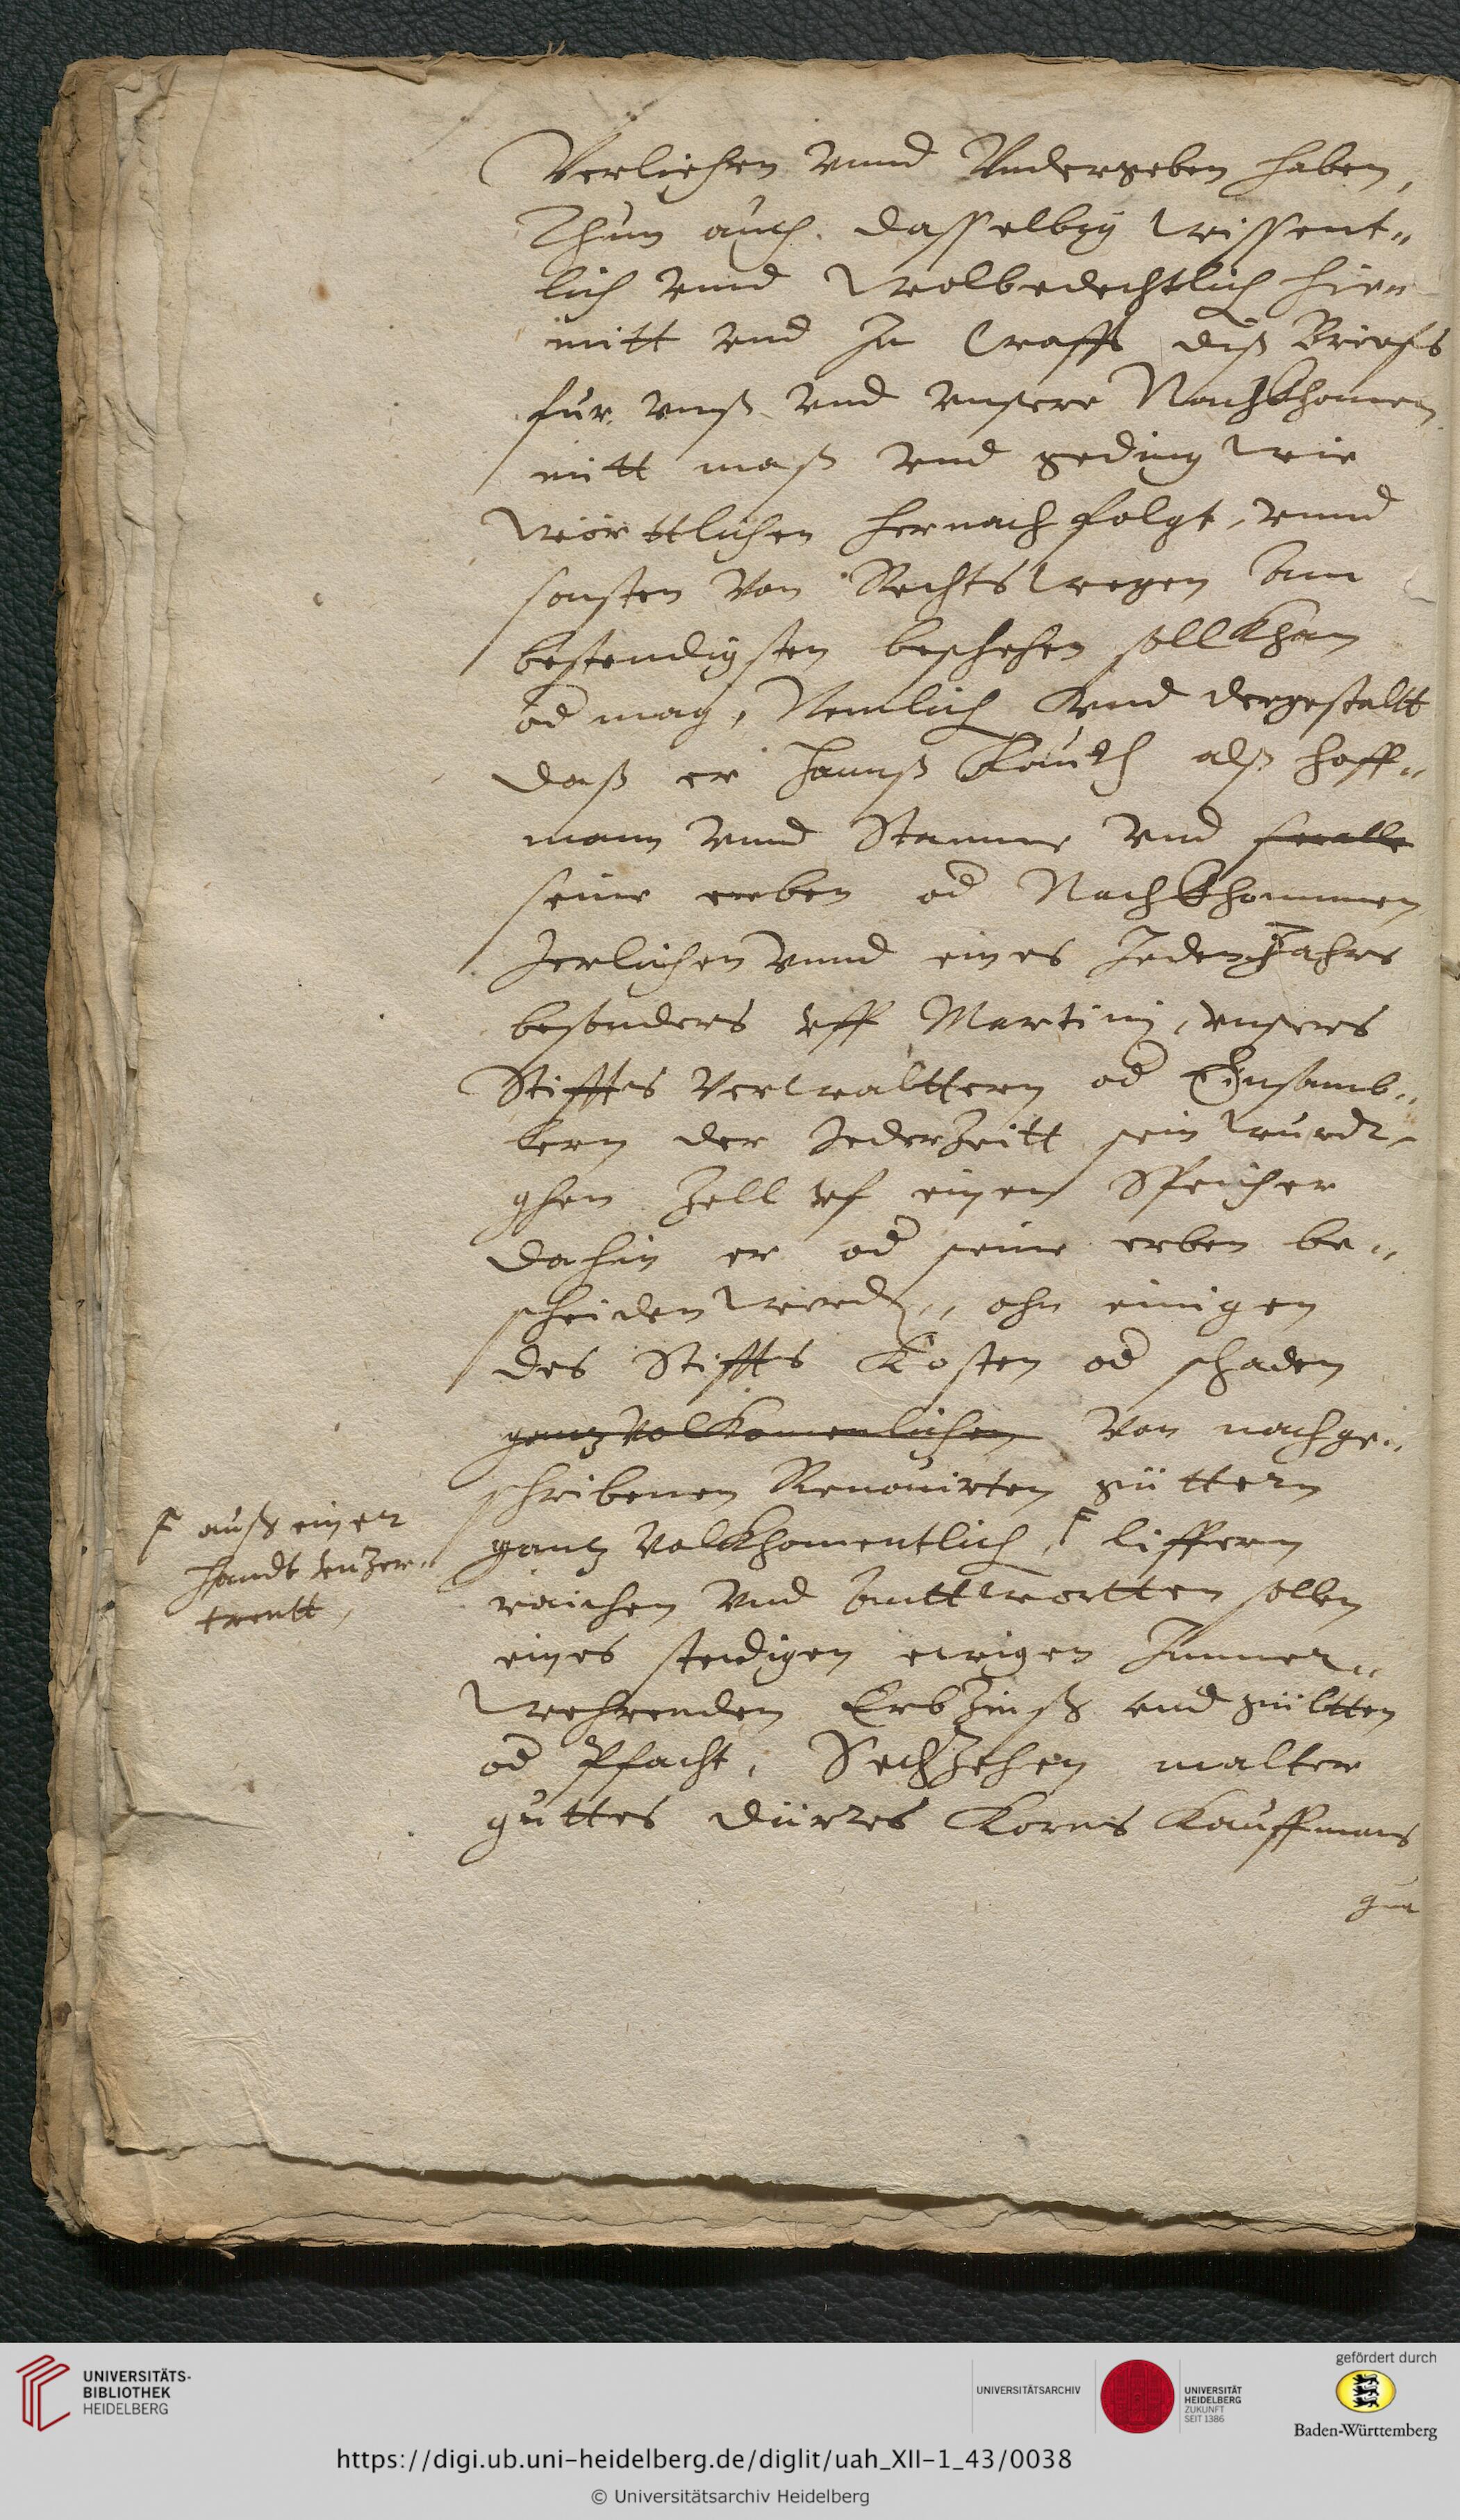 Verliehen vnnd Vndergeben haben,
Thun auch dasselbig wissent„
lich vnnd wolbedechtlich hie„
mitt vnd In Crafft diß Brieffs
für vnß vnd vnsere Nachkhomen
mitt maß vnd geding wie
wörttlichen hernach folgt, vnnd
sonsten Von Rechts wegen Am
bestendigsten beschehen soll khan
od mag, Nemlich vnd dergestaltt
daß er Hannß Kauth alß Hoff„
mann vnnd Stamme vnd
seine erben od Nachkhommen
Jerlichen vnnd eines Jeden Jahrs
besonders vff Martinj, vnsers
Stiffts Verwalttern od Einsamb„
lern der Jederzeitt sein wurdt,
ghen Zell vf einen Speicher
dahin er od seine erben be„
scheiden werd„, ohn einigen
des Stiffts Kosten od schaden
gantz Volkomenlichen Von nachge„
schribenen Renouirten güttern
gantz Volkhomentlich, F liffern
F auß einer
handt vnzer„
trentt,
raichen vnd Anttwortten sollen
eines stendigen ewigen Immer„
wehrenden Erbzinß vnd gültten
od Pfacht, Sechzehen malter
guttes dürres Korns Kauffmans
gut
UNIVERSITÄTS-
BIBLIOTHEK
HEIDELBERG
UNIVERSITÄTSARCHIV
UNIVERSITÄT
HEIDELBERG
ZUKUNFT
SEIT 1386
gefördert durch
Baden-Württemberg
https://digi.ub.uni-heidelberg.de/diglit/uah_XII-1_43/0038
© Universitätsarchiv Heidelberg